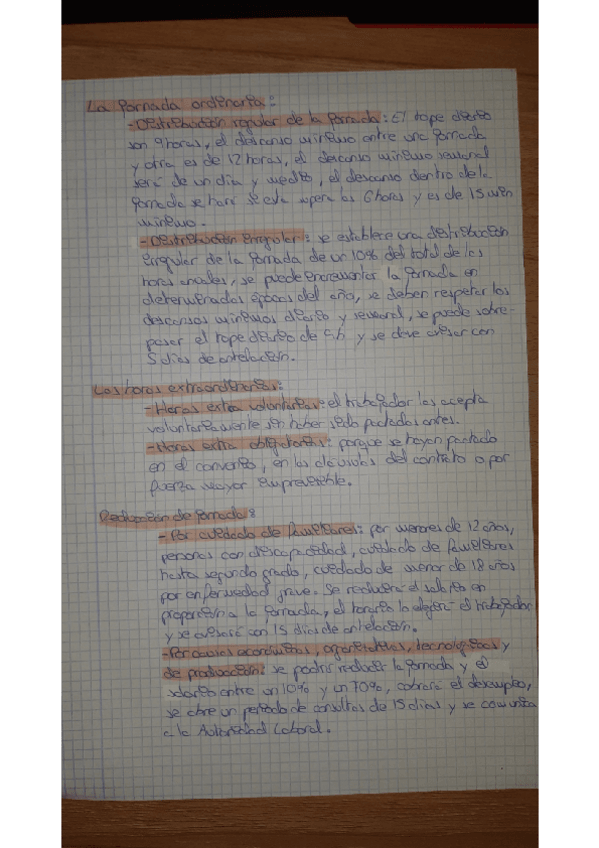 La jornada ordinaria:
- Distribución regular de la jornada: El tope diario
son 9 horas, el descanso mínimo entre una jornada
y otra es de 12 horas, el descanso mínimo semanal
será de un día y medio, el descanso dentro de la
jornada se hará si esta supera las 6 horas y es de 15 min
mínimo.
- Distribución irregular: se establece una distribución
irregular de la jornada de un 10% del total de las
horas anuales, se puede incrementar la jornada en
determinadas épocas del año, se deben respetar los
descansos mínimos diario y semanal, se puede sobre-
pasar el tope diario de h y se deve avisar con
5 días de antelación.
Las horas extraordinarias:
- Horas extra voluntarias: el trabajador las acepta
voluntariamente sin haber sido pactadas antes.
- Horas extra obligatorias: porque se hayan pactado
en el convenio, en las cláusulas del contrato o por
fuerza mayor imprevisible.
Reducción de jornada:
- Por cuidado de familiares: por menores de 12 años,
personas con discapacidad, cuidado de familiares
hasta segundo grado, cuidado de menor de 18 años
por enfermedad grave. Se reducirá el salario en
proporción a la jornada, el horario lo elegirá el trabajador
y se avisará con 15 días de antelación.
- Por causas económicas, organizativas, tecnológicas y
de producción: se podrá reducir la jornada y el
salario entre un 10% y un 70%, cobrará el desempleo,
se abre un periodo de consultas de 15 días y se comunica
a la Autoridad Laboral.